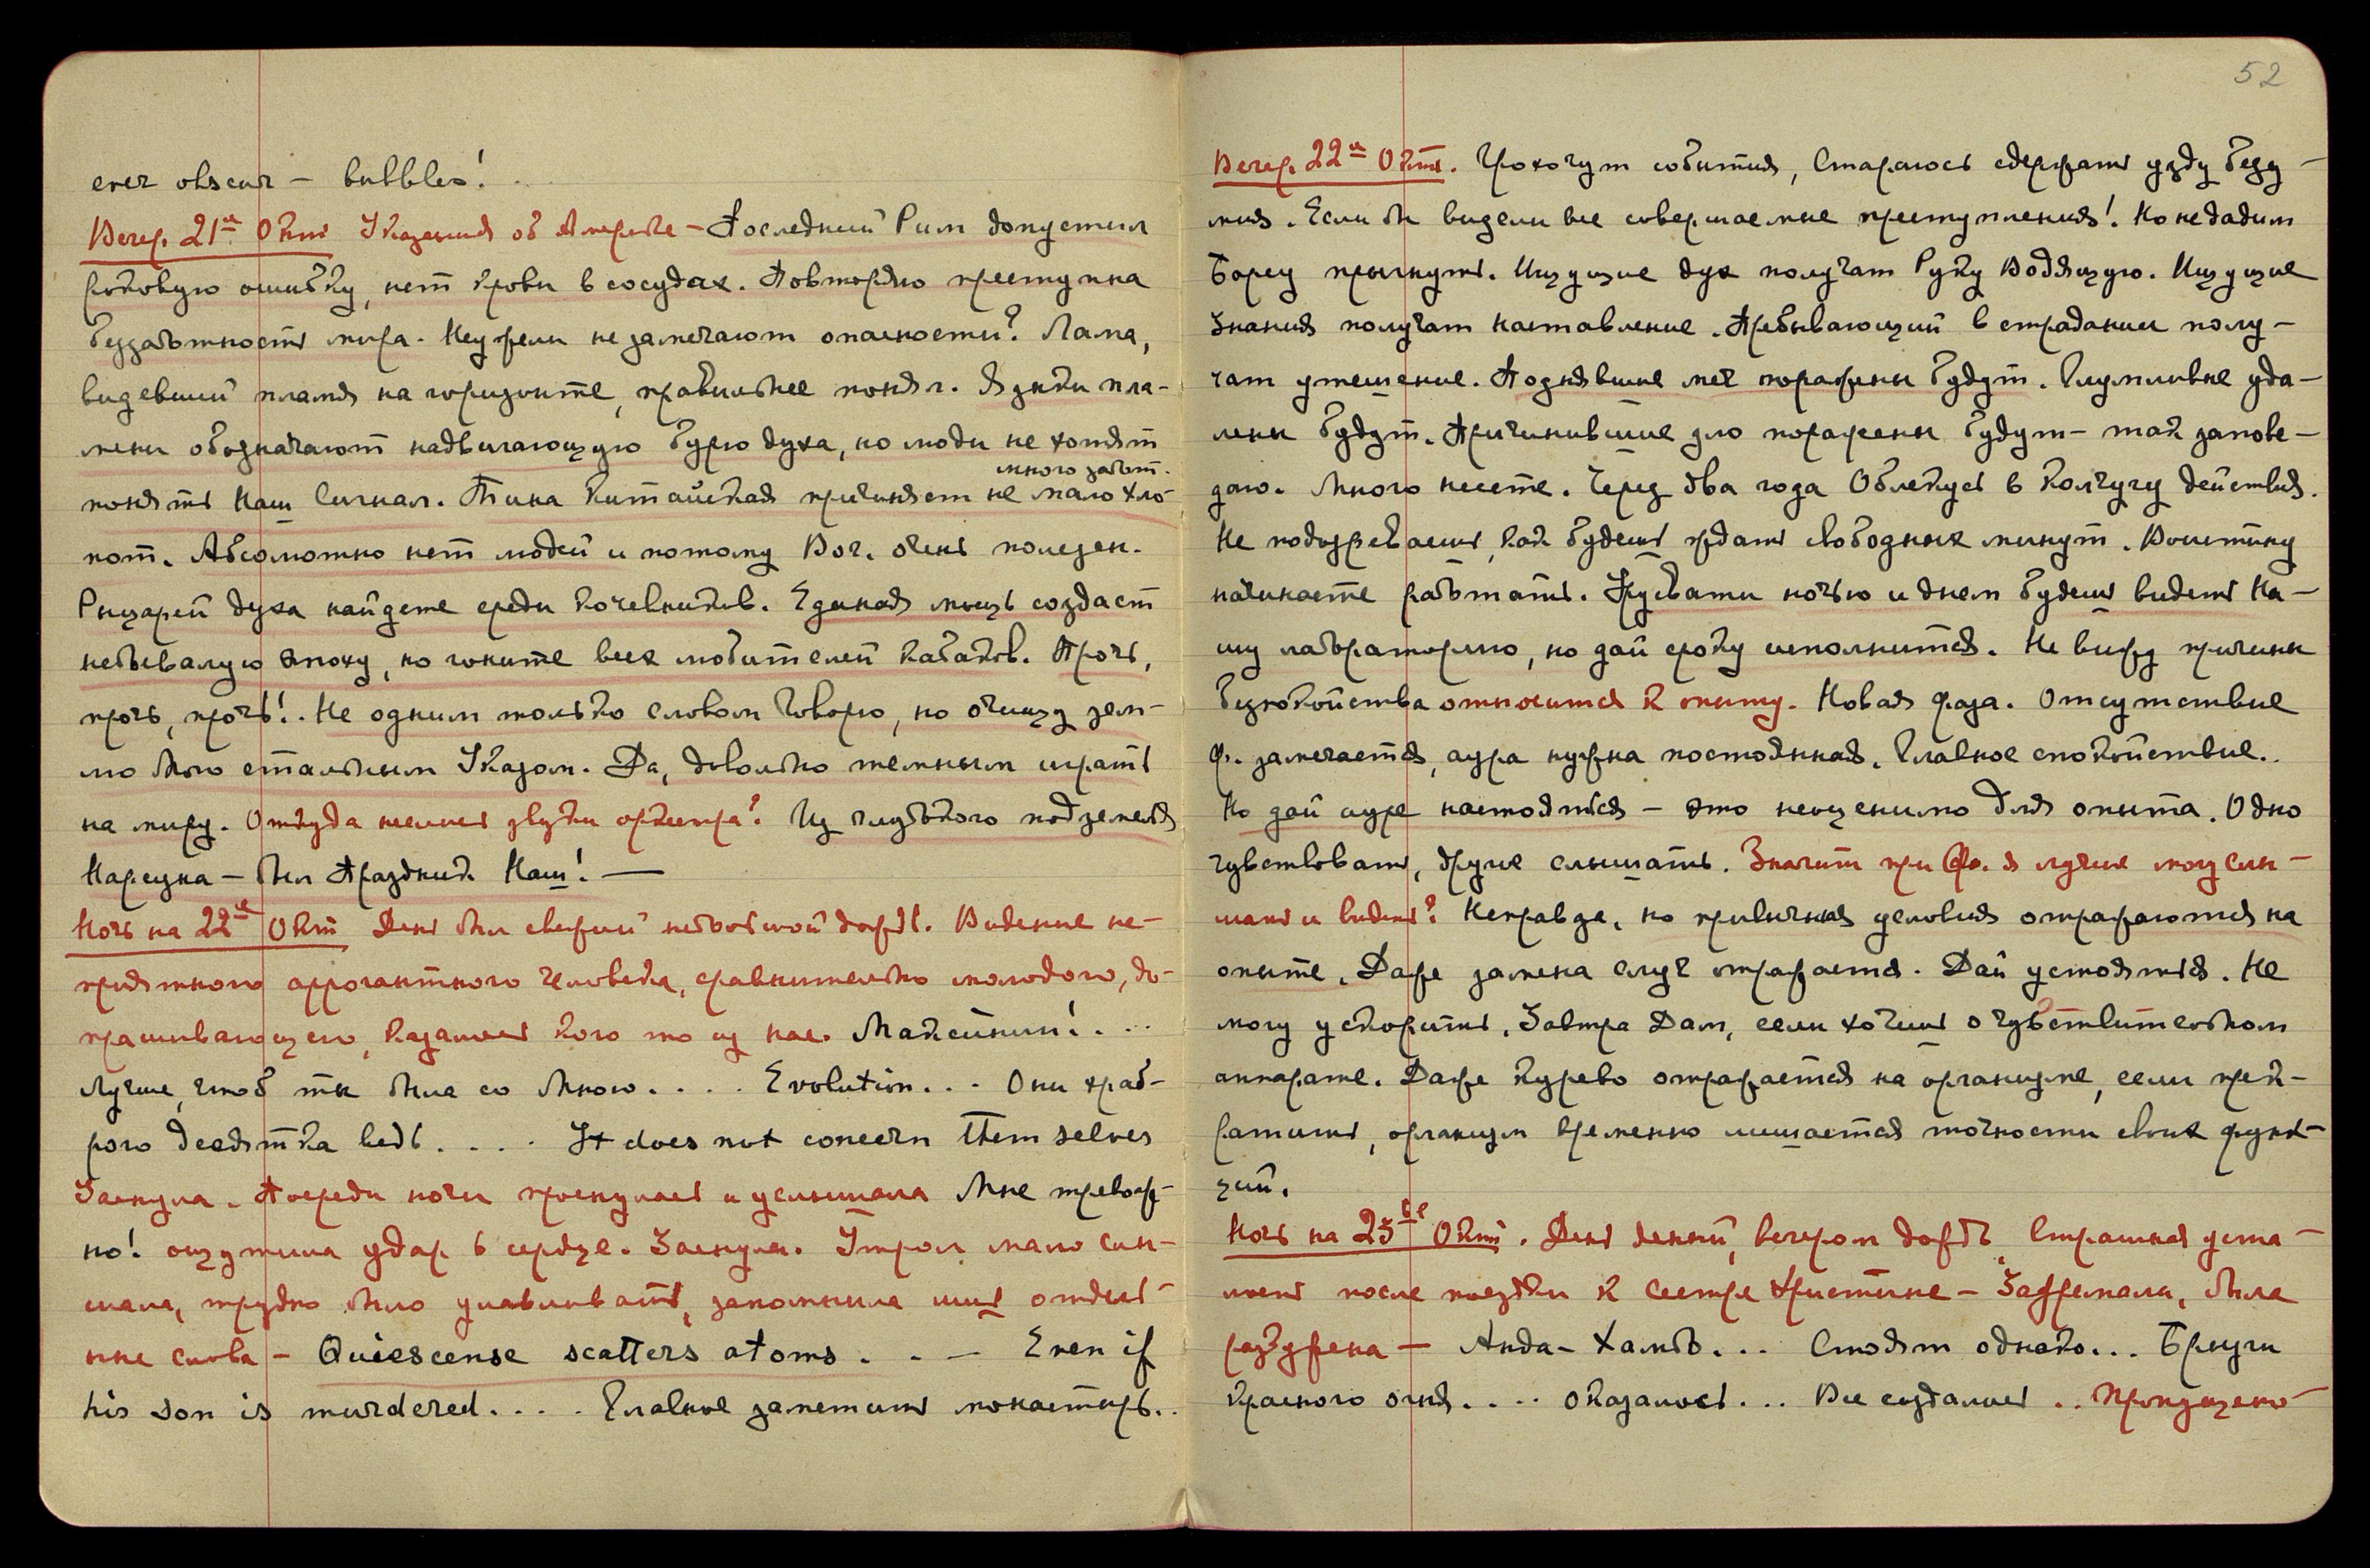 ever obscur — bubbles!..
Вечер. 21го Окт Указания об Америке — Последний Рим допустил
роковую ошибку, нет крови в сосудах. Повторяю преступна
беззаботность мира. Неужели не замечают опасности? Лама,
видевший пламя на горизонте, правильнее понял. Языки пла-
мени обозначают надвигающуюся бурю духа, но люди не хотят
много забот.
понять Наш Сигнал. Тина Китайская причиняет не мало хло-
пот. Абсолютно нет людей и потому Вог. очень полезен.
Рыцарей духа найдете среди кочевников. Единая мысль создаст
небывалую эпоху, но гоните всех любителей кабаков. Прочь,
прочь, прочь!. Не одним только словом Говорю, но очищу зем-
лю Мою стальным Указом. Да, довольно темным играть
на миру. Откуда неслись звуки оркестра? Из глубокого подземелья
Нарецка — был Праздник Наш! —
Ночь на 22ое Окт День был свежий небольшой дождь. Видение не-
приятного аррогантного человека, сравнительно молодого, до-
прашивающего, казалось кого то из нас. Максимин!. ...
Лучше, чтоб ты была со Мною. . . . Evolution. . . Они храб-
рого десятка ведь. . . . It does not concern them selves
Заснула. Посреди ночи проснулась и услышала Мне тревож-
но! ощутила удар в сердце. Заснула. Утром мало слы-
шала, трудно было улавливать, запомнила лишь отдель-
ные слова — Quiescense scatters atoms. . — Even if
his son is murdered. . . . Главное заметить монастырь..
52
Вечер. 22го Окт. Грохочут события, Стараюсь сдержать узду безу-
мия. Если бы видели все совершаемые преступления! Но не дадим
Борец прыгнуть. Ищущие дух получат Руку Водящую. Ищущие
Знания получат наставление. Пребывающий в страдании полу-
чат утешение. Поднявшие меч поражены будут. Глумливые уда-
лены будут. Причинившие зло поражены будут — так запове-
даю. Много несете. Через два года Облекусь в Кольчугу действия.
Не подозреваешь, как будешь ждать свободных минут. Воистину
начинаете работать. Урусвати ночью и днем будешь видеть На-
шу лабораторию, но дай сроку исполниться. Не вижу причины
безпокойства относится к опыту. Новая фаза. Отсутствие
Ф. замечается, аура нужна постоянная. Главное спокойствие..
Но дай ауре настояться — это неоценимо для опыта. Одно
чувствовать, другое слышать. Значит при Ф. я лучше могу слы-
шать и видеть? Неправда, но привычная условия отражаются на
опыте. Даже замена слуг отражается. Дай устояться. Не
могу ускорить. Завтра Дам, если хочешь о чувствительном
аппарате. Даже курево отражается на организме, если прек-
ратить, организм временно лишается точности своих функ-
ций.
Ночь на 23ье Окт. День ясный, вечером дождь. Страшная уста-
лость после поездки к Сестре Христине — Задремала, была
разбужена — Анда- Хамбо... Стоят однако... Брызги
красного огня.... оказалось... Все создалось .. Пропущено